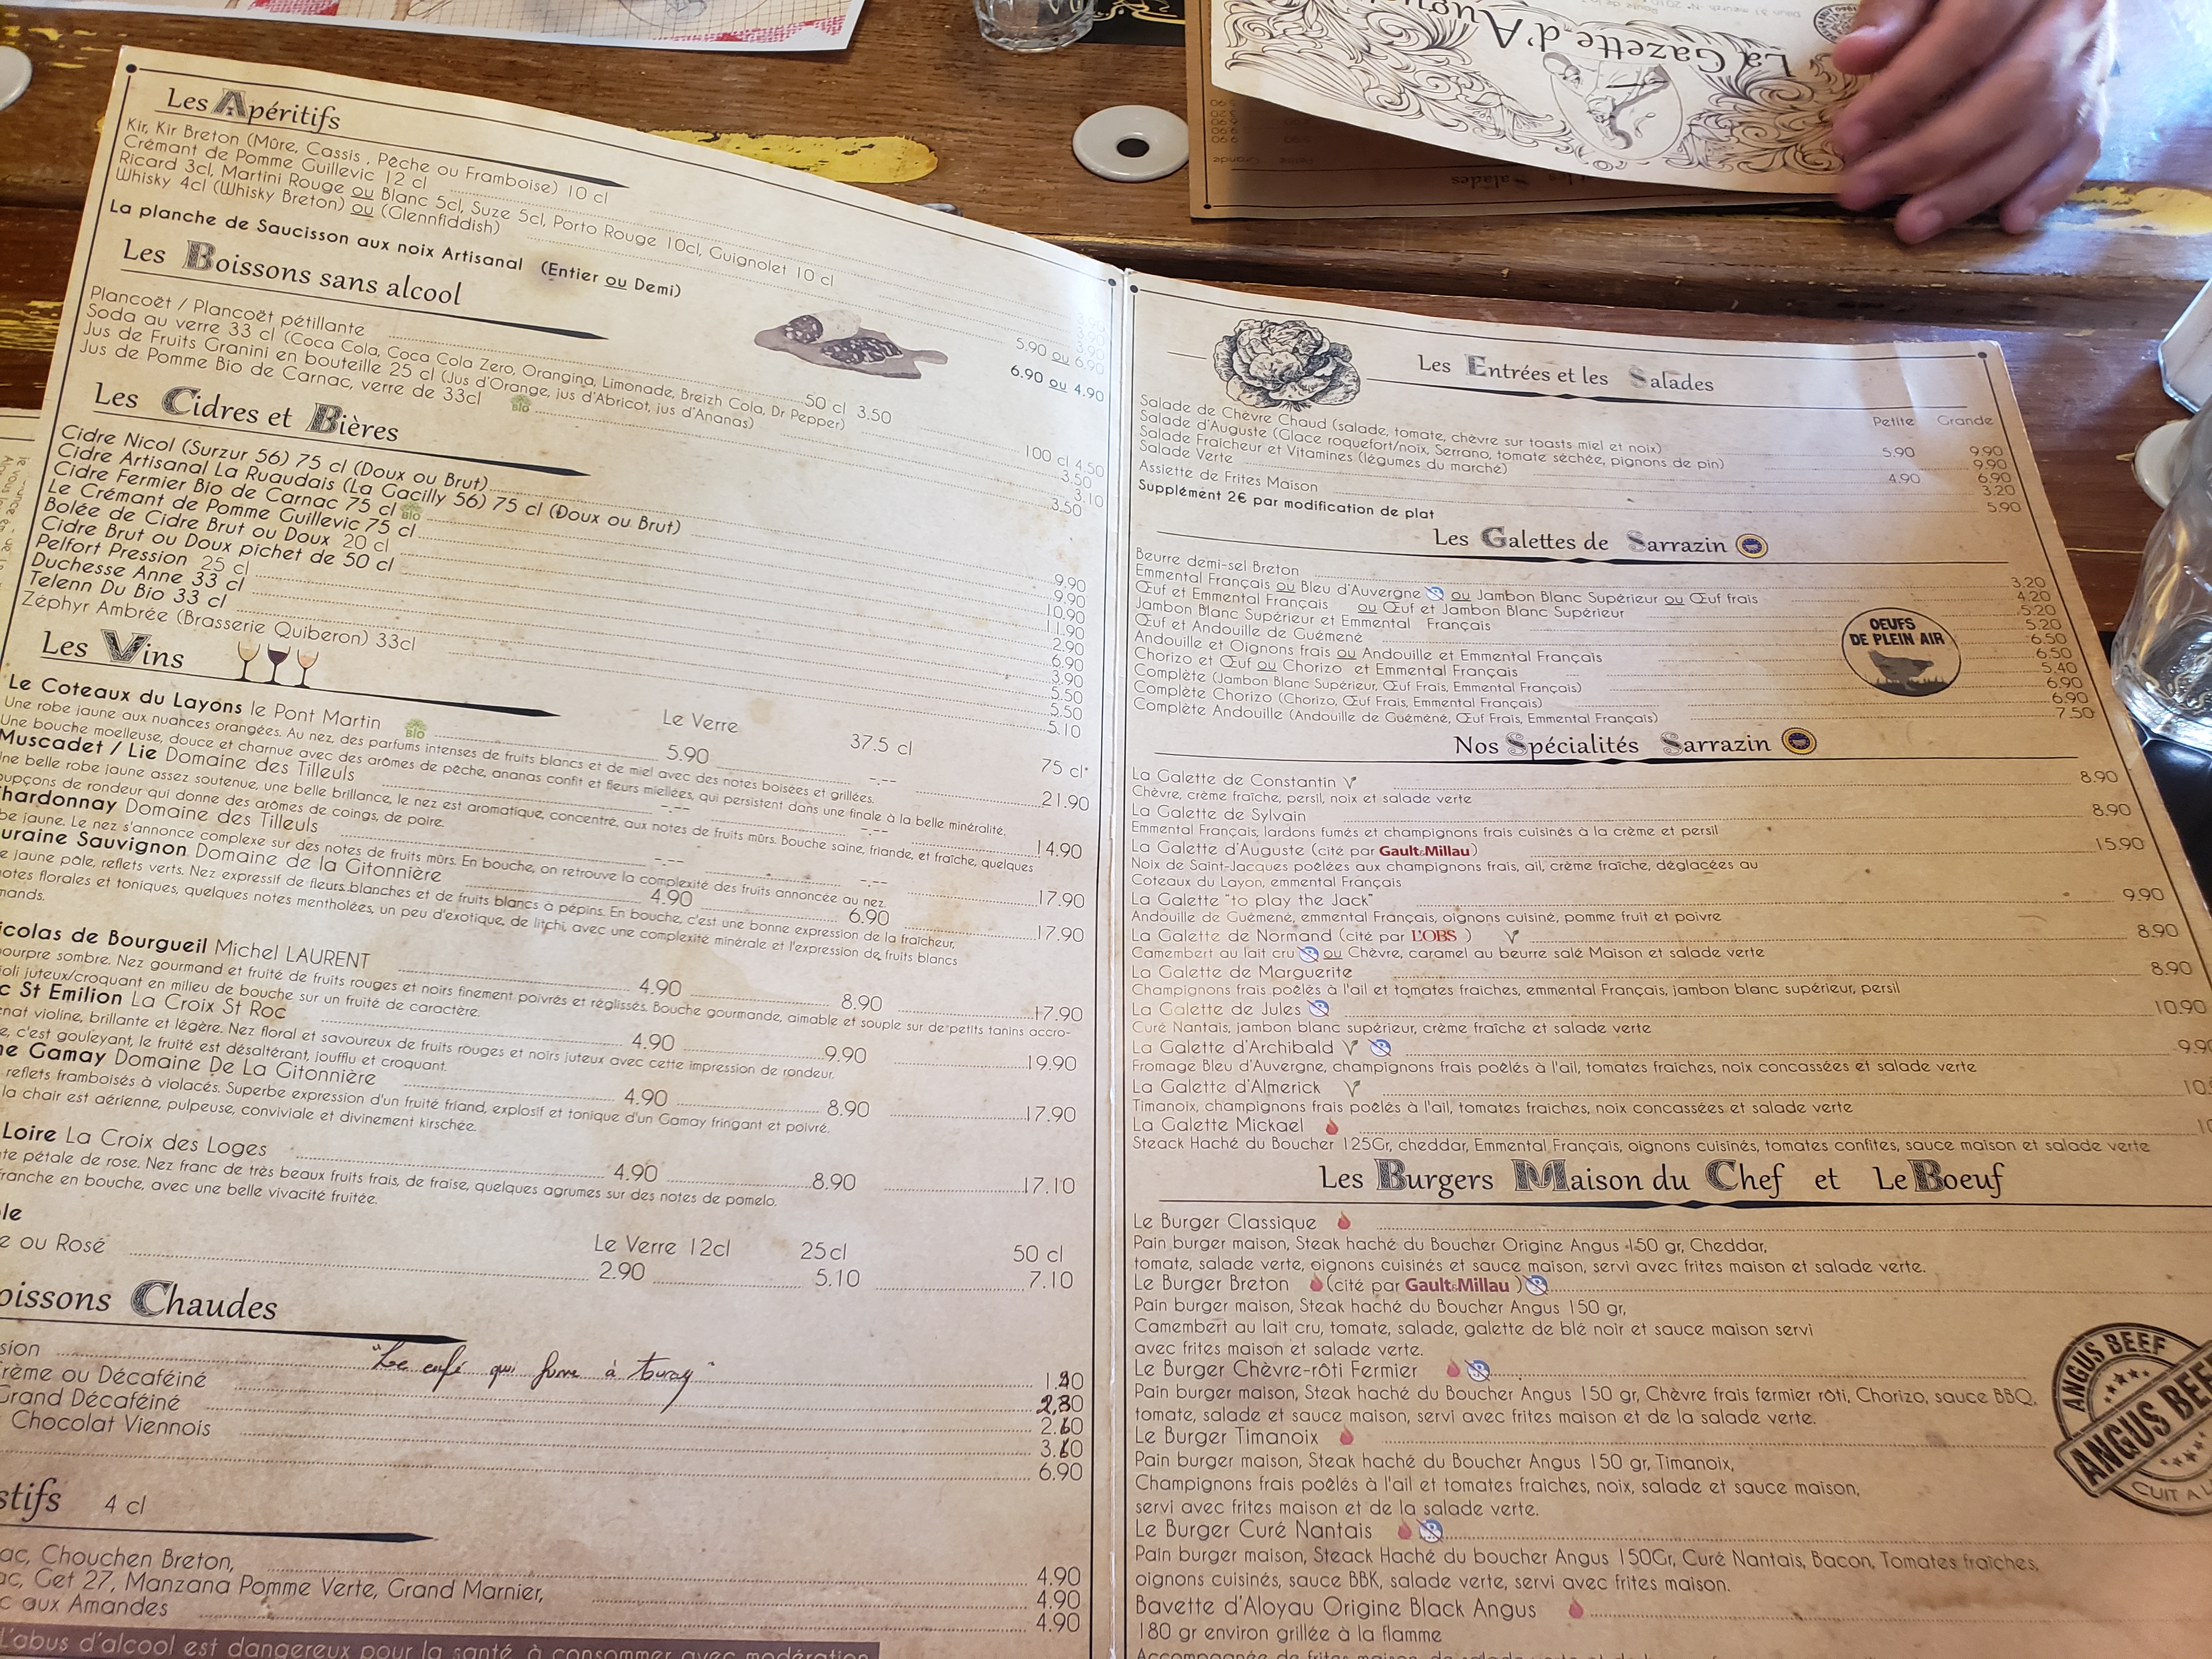 Les Apéritifs
Kir, Kir Breton (Mûre, Cassis , Pêche ou Framboise) 10 cl
Crémant de Pomme Guillevic 12 cl
Ricard 3cl, Martini Rouge ou Blanc 5cl, Suze 5cl, Porto Rouge 10cl, Guignolet 10 cl
Whisky 4cl (Whisky Breton) ou (Glennfiddish) 5.90 ou 6.90
La planche de Saucisson aux noix Artisanal (Entier ou Demi) 6.90 ou 4.90
Les Boissons sans alcool
Plancoët / Plancoët pétillante 50 cl 3.50 100 cl 4.50
Soda au verre 33 cl (Coca Cola, Coca Cola Zero, Orangina, Limonade, Breizh Cola, Dr Pepper) 3.50
Jus de Fruits Granini en bouteille 25 cl (Jus d'Orange, jus d'Abricot, jus d'Ananas) 3.10
Jus de Pomme Bio de Carnac, verre de 33cl BIO 3.50
Les Cidres et Bières
Cidre Nicol (Surzur 56) 75 cl (Doux ou Brut) 9.90
Cidre Artisanal La Ruaudais (La Gacilly 56) 75 cl (Doux ou Brut) 9.90
Cidre Fermier Bio de Carnac 75 cl BIO 10.90
Le Crémant de Pomme Guillevic 75 cl 11.90
Bolée de Cidre Brut ou Doux 20 cl 2.90
Cidre Brut ou Doux pichet de 50 cl 6.90
Pelfort Pression 25 cl 3.90
Duchesse Anne 33 cl 5.50
Telenn Du Bio 33 cl 5.50
Zéphyr Ambrée (Brasserie Quiberon) 33cl 5.10
Les Vins
Le Verre 37.5 cl 75 cl
Le Coteaux du Layons le Pont Martin BIO 5.90 -.-- 21.90
Une robe jaune aux nuances orangées. Au nez, des parfums intenses de fruits blancs et de miel avec des notes boisées et grillées.
Une bouche moelleuse, douce et charnue avec des arômes de pêche, ananas confit et fleurs miellées, qui persistent dans une finale à la belle minéralité.
Muscadet / Lie Domaine des Tilleuls -.-- -.-- 14.90
Une belle robe jaune assez soutenue, une belle brillance, le nez est aromatique, concentré, aux notes de fruits mûrs. Bouche saine, friande, et fraîche, quelques
oupçons de rondeur qui donne des arômes de coings, de poire.
hardonnay Domaine des Tilleuls -.-- -.-- 17.90
be jaune. Le nez s'annonce complexe sur des notes de fruits mûrs. En bouche, on retrouve la complexité des fruits annoncée au nez.
uraine Sauvignon Domaine de la Gitonnière 4.90 6.90 17.90
e jaune pâle, reflets verts. Nez expressif de fleurs blanches et de fruits blancs à pépins. En bouche, c'est une bonne expression de la fraîcheur,
notes florales et toniques, quelques notes mentholées, un peu d'exotique, de litchi, avec une complexité minérale et l'expression de fruits blancs
mands.
icolas de Bourgueil Michel LAURENT 4.90 8.90 17.90
pourpre sombre. Nez gourmand et fruité de fruits rouges et noirs finement poivrés et réglissés. Bouche gourmande, aimable et souple sur de petits tanins accro-
oli juteux/croquant en milieu de bouche sur un fruité de caractère.
c St Emilion La Croix St Roc 4.90 9.90 19.90
nat violine, brillante et légère. Nez floral et savoureux de fruits rouges et noirs juteux avec cette impression de rondeur,
e, c'est gouleyant, le fruité est désaltérant, joufflu et croquant.
ne Gamay Domaine De La Gitonnière 4.90 8.90 17.90
reflets framboisés à violacés. Superbe expression d'un fruité friand, explosif et tonique d'un Gamay fringant et poivré.
la chair est aérienne, pulpeuse, conviviale et divinement kirschée.
Loire La Croix des Loges 4.90 8.90 17.10
te pétale de rose. Nez franc de très beaux fruits frais, de fraise, quelques agrumes sur des notes de pomelo.
franche en bouche, avec une belle vivacité fruitée.
le
Le Verre 12cl 25cl 50 cl
e ou Rosé 2.90 5.10 7.10
oissons Chaudes
"Le café qui fume à
sion
rème ou Décaféiné
Grand Décaféiné
Chocolat Viennois
6.90
stifs 4 cl
ac, Chouchen Breton, 4.90
ac, Get 27, Manzana Pomme Verte, Grand Marnier, 4.90
c aux Amandes 4.90
L'abus d'alcool est dangereux pour la santé, à consommer avec modération
La Gazette d'Augu
Les Entrées et les Salades
Petite Grande
Salade de Chèvre Chaud (salade, tomate, chèvre sur toasts miel et noix) 5.90 9.90
Salade d'Auguste (Glace roquefort/noix, Serrano, tomate séchée, pignons de pin) 9.90
Salade Fraîcheur et Vitamines (légumes du marché) 4.90 6.90
Salade Verte 3.20
Assiette de Frites Maison 5.90
Supplément 2€ par modification de plat
Les Galettes de Sarrazin
Beurre demi-sel Breton 3.20
Emmental Français ou Bleu d'Auvergne ou Jambon Blanc Supérieur ou Œuf frais 4.20
Œuf et Emmental Français ou Œuf et Jambon Blanc Supérieur 5.20
Jambon Blanc Supérieur et Emmental Français 5.20
Œuf et Andouille de Guémené 6.50
Andouille et Oignons frais ou Andouille et Emmental Français 6.50
Chorizo et Œuf ou Chorizo et Emmental Français 5.40
Complète (Jambon Blanc Supérieur, Œuf Frais, Emmental Français) 6.90
Complète Chorizo (Chorizo, Œuf Frais, Emmental Français) 6.90
Complète Andouille (Andouille de Guémené, Œuf Frais, Emmental Français) 7.50
OEUFS
DE PLEIN AIR
Nos Spécialités Sarrazin
La Galette de Constantin 8.90
Chèvre, crème fraîche, persil, noix et salade verte
La Galette de Sylvain 8.90
Emmental Français, lardons fumés et champignons frais cuisinés à la crème et persil
La Galette d'Auguste (cité par Gault&Millau) 15.90
Noix de Saint-Jacques poêlées aux champignons frais, ail, crème fraîche, déglacées au
Coteaux du Layon, emmental Français
La Galette "to play the Jack" 9.90
Andouille de Guémené, emmental Français, oignons cuisiné, pomme fruit et poivre
La Galette de Normand (cité par L'OBS ) 8.90
Camembert au lait cru ou Chèvre, caramel au beurre salé Maison et salade verte
La Galette de Marguerite 8.90
Champignons frais poêlés à l'ail et tomates fraiches, emmental Français, jambon blanc supérieur, persil
La Galette de Jules 10.90
Curé Nantais, jambon blanc supérieur, crème fraîche et salade verte
La Galette d'Archibald 9.90
Fromage Bleu d'Auvergne, champignons frais poêlés à l'ail, tomates fraîches, noix concassées et salade verte
La Galette d'Almerick 10.
Timanoix, champignons frais poêlés à l'ail, tomates fraiches, noix concassées et salade verte
La Galette Mickael 10
Steack Haché du Boucher 125Gr, cheddar, Emmental Français, oignons cuisinés, tomates confites, sauce maison et salade verte
Les Burgers Maison du Chef et Le Boeuf
Le Burger Classique
Pain burger maison, Steak haché du Boucher Origine Angus 150 gr, Cheddar,
tomate, salade verte, oignons cuisinés et sauce maison, servi avec frites maison et salade verte.
Le Burger Breton (cité par Gault&Millau )
Pain burger maison, Steak haché du Boucher Angus 150 gr,
Camembert au lait cru, tomate, salade, galette de blé noir et sauce maison servi
avec frites maison et salade verte.
Le Burger Chèvre-rôti Fermier
Pain burger maison, Steak haché du Boucher Angus 150 gr, Chèvre frais fermier rôti, Chorizo, sauce BBQ,
tomate, salade et sauce maison, servi avec frites maison et de la salade verte.
Le Burger Timanoix
Pain burger maison, Steak haché du Boucher Angus 150 gr, Timanoix,
Champignons frais poêlés à l'ail et tomates fraiches, noix, salade et sauce maison,
servi avec frites maison et de la salade verte.
Le Burger Curé Nantais
Pain burger maison, Steack Haché du boucher Angus 150Gr, Curé Nantais, Bacon, Tomates fraîches,
oignons cuisinés, sauce BBK, salade verte, servi avec frites maison.
Bavette d'Aloyau Origine Black Angus
180 gr environ grillée à la flamme
ANGUS BEEF
ANGUS BEEF
CUIT A L